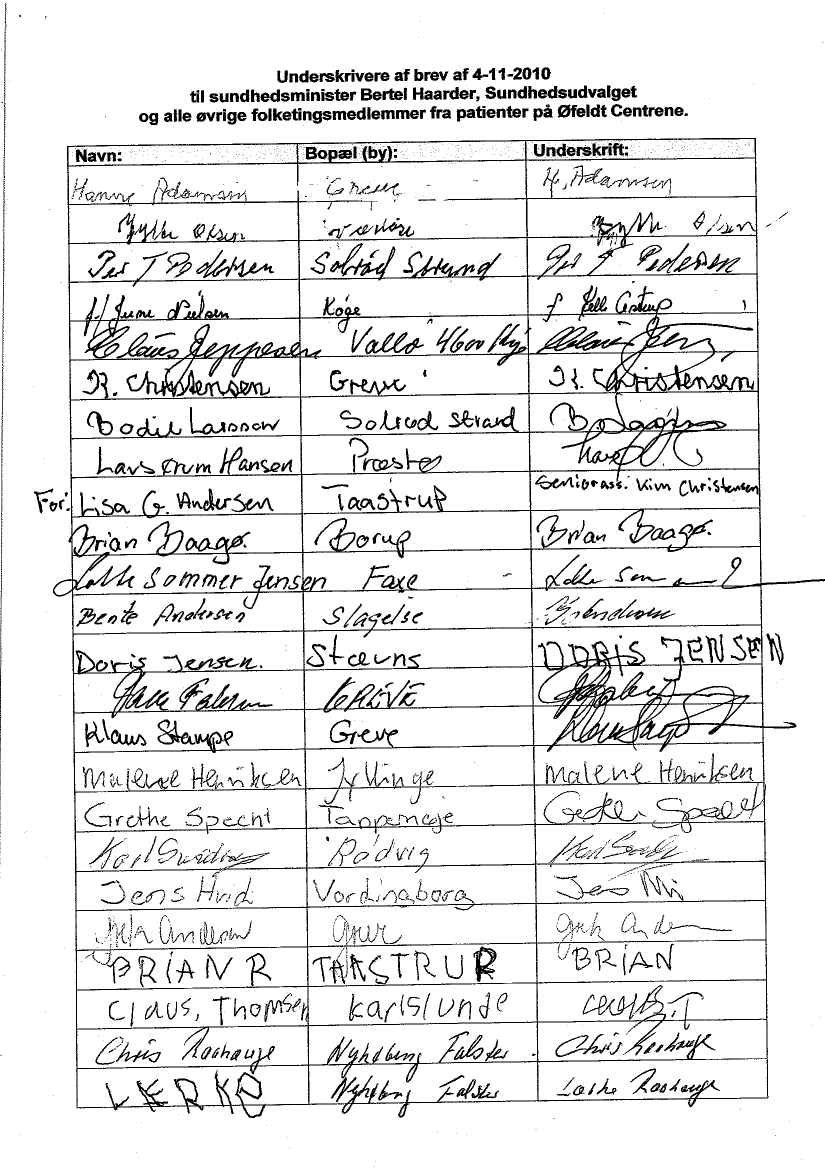 Underskrivere af brev af 4-11-2010
til sundhedsminister Bertel Haarder, Sundhedsudvalget
og alle øvrige folketingsmedlemmer fra patienter på Øfeldt Centrene.
Navn: Bopæl (by): Underskrift:
Hanne Adamsen Greve H. Adamsen
Jytte Olsen Værløse Jytte Olsen
Per T Pedersen Solrød Strand Per T Pedersen
f/ Nielsen Køge f
Claus Jeppesen Vallø 4600 Claus
K. Christensen Greve K. Christensen
Bodil Larsson Solrød strand
Lars Krum Hansen Præstø
For: Lisa G. Andersen Taastrup Seniorass. Kim Christensen
Brian Baagø. Borup Brian Baagø.
Lotte Sommer Jensen Faxe Lotte
Bente Andersen Slagelse
Doris Jensen. Stævns DORIS JENSEN
GREVE
Klaus Stampe Greve Klaus
Malene Henriksen Jyllinge Malene Henriksen
Grethe Specht Tappernøje Grethe Specht
Karl Rødvig Karl
Jens Hvid Vordingborg Jens
Andersen
BRIAN R TAASTRUP BRIAN
Claus, Thomsen Karlslunde
Chris Roshauge Nykøbing Falster Chris Roshauge
LÆRKE Nykøbing Falster Roshauge